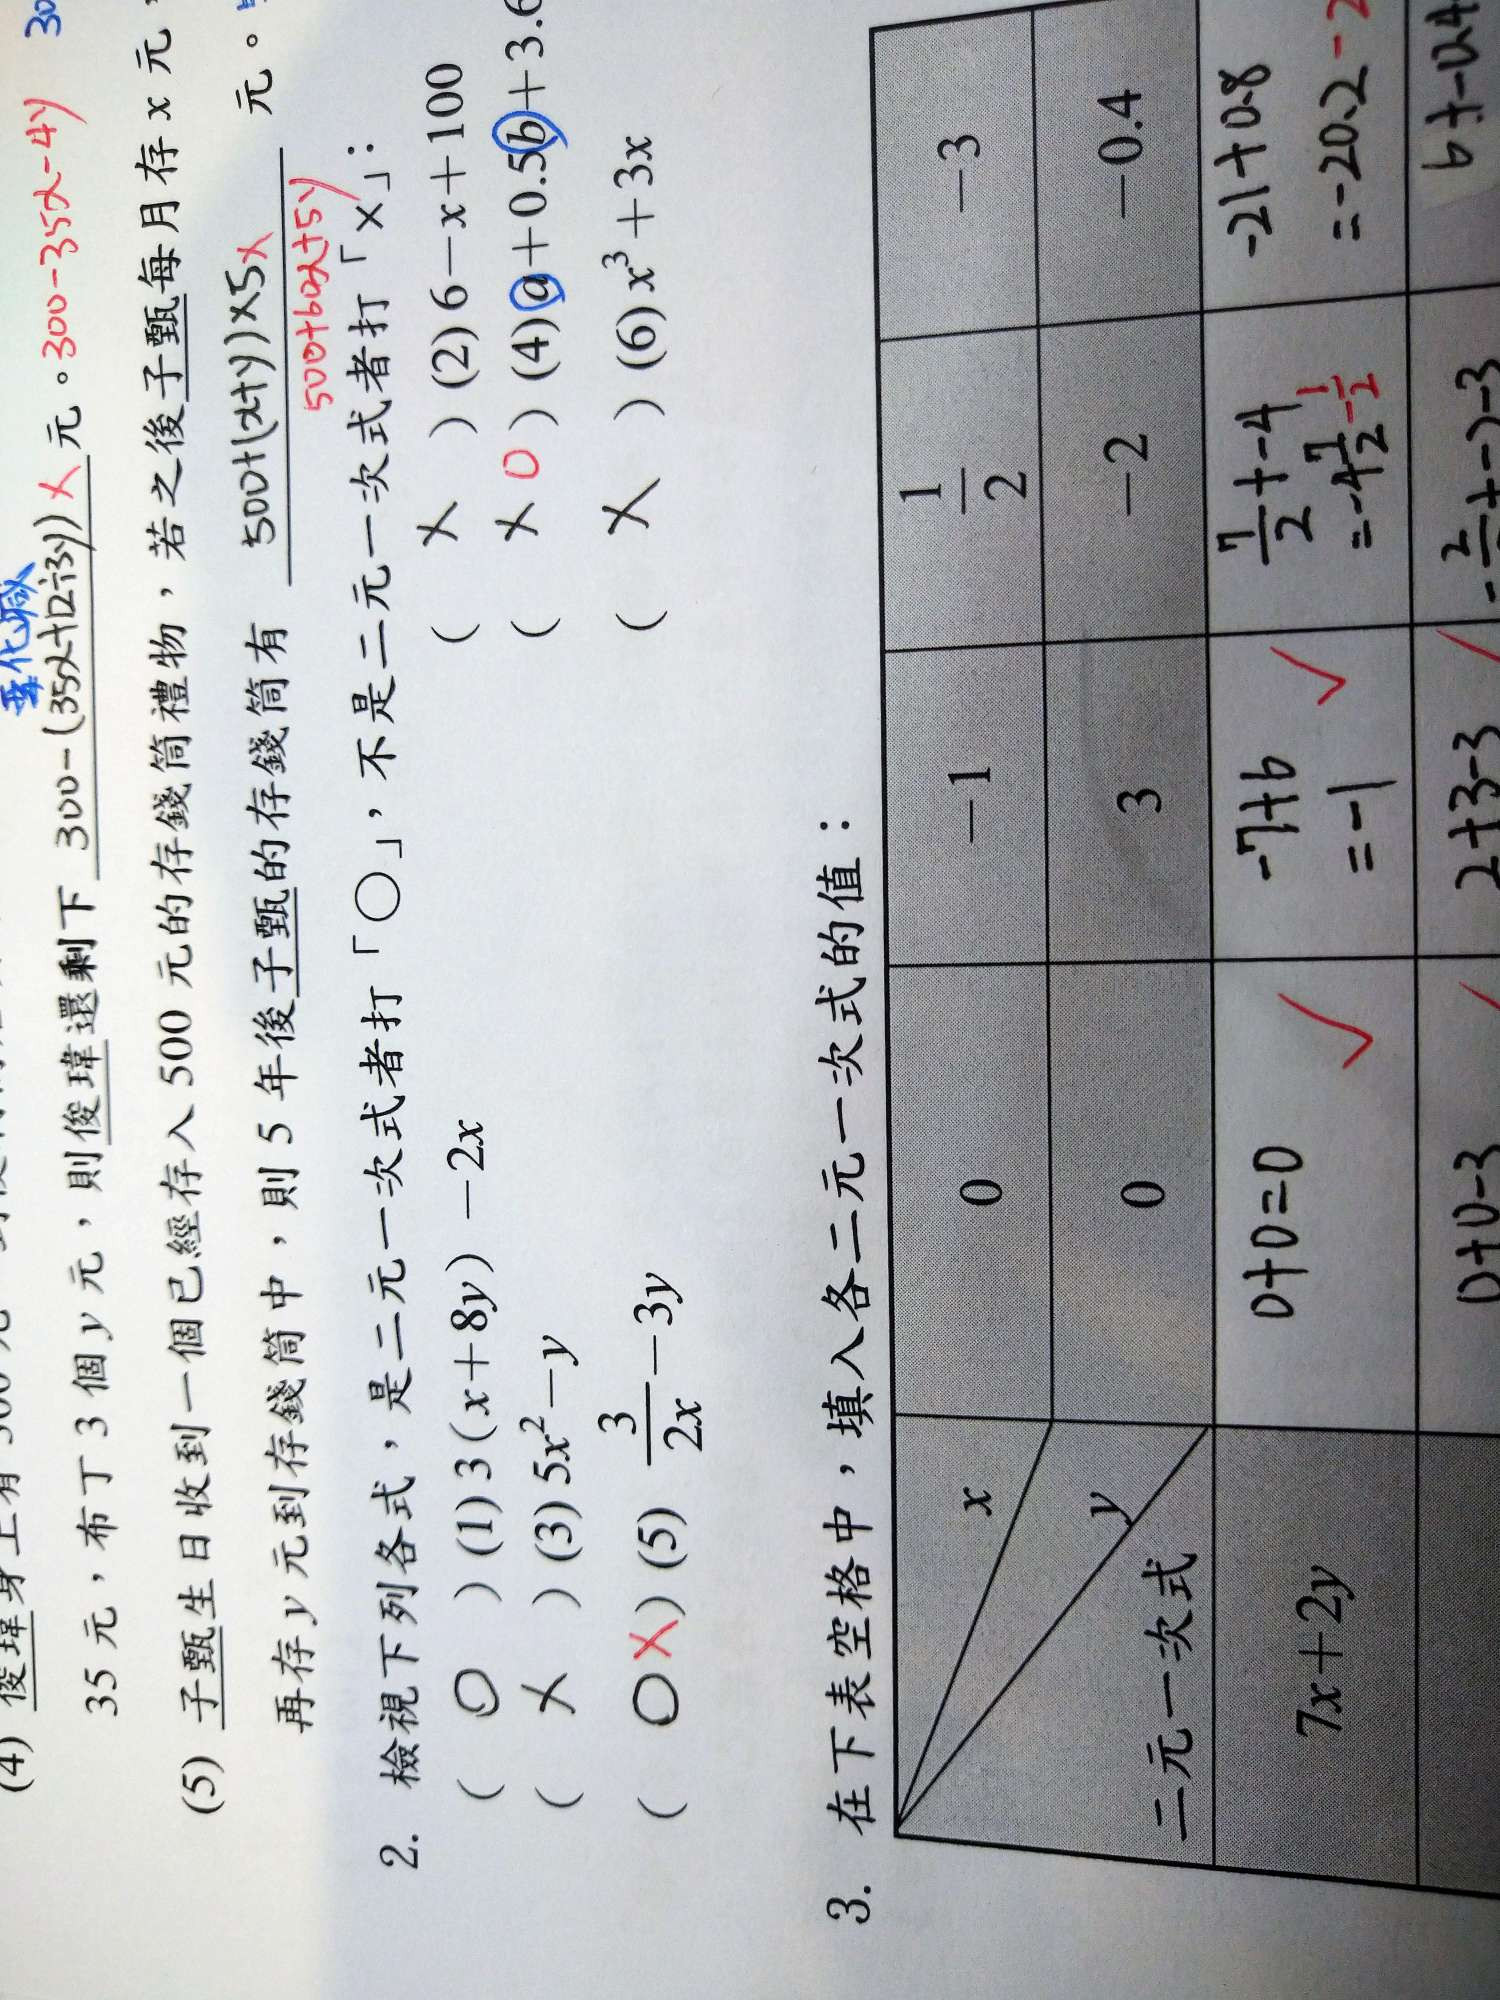 (4) 俊瑋身上有300元
要化減
35元，布丁3個y元，則俊瑋還剩下 300-(35x+12÷3y)) X 元。300-35x-4y
(5) 子甄生日收到一個已經存入500元的存錢筒禮物，若之後子甄每月存x元，
再存y元到存錢筒中，則5年後子甄的存錢筒有 500+(x+y))×5 X 元。
500+60x+5y
2. 檢視下列各式，是二元一次式者打「○」，不是二元一次式者打「×」：
( O ) (1) 3(x+8y)-2x ( X ) (2) 6-x+100
( X ) (3) 5x²-y ( X O ) (4) a+0.5b+3.6
( O X ) (5) 3/2x-3y ( X ) (6) x³+3x
3. 在下表空格中，填入各二元一次式的值：
x 0 -1 1/2 -3
y 0 3 -2 -0.4
二元一次式
7x+2y 0+0=0 ✓ -7+6 ✓ 7/2+-4 -21+0.8
=-1 =-4 7/2 -1/2 =-20.2
0+0-3 2+3-3 -2/2+-2-3 6+-0.4